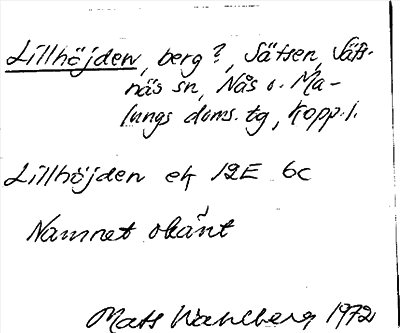 Lillhöjden, berg?, Sätsen, Säfs-
näs sn, Nås o. Ma-
lungs doms. tg, Kopp. l.
Lillhöjden ek 12E 6c
Namnet okänt
Mats Wahlberg 1972